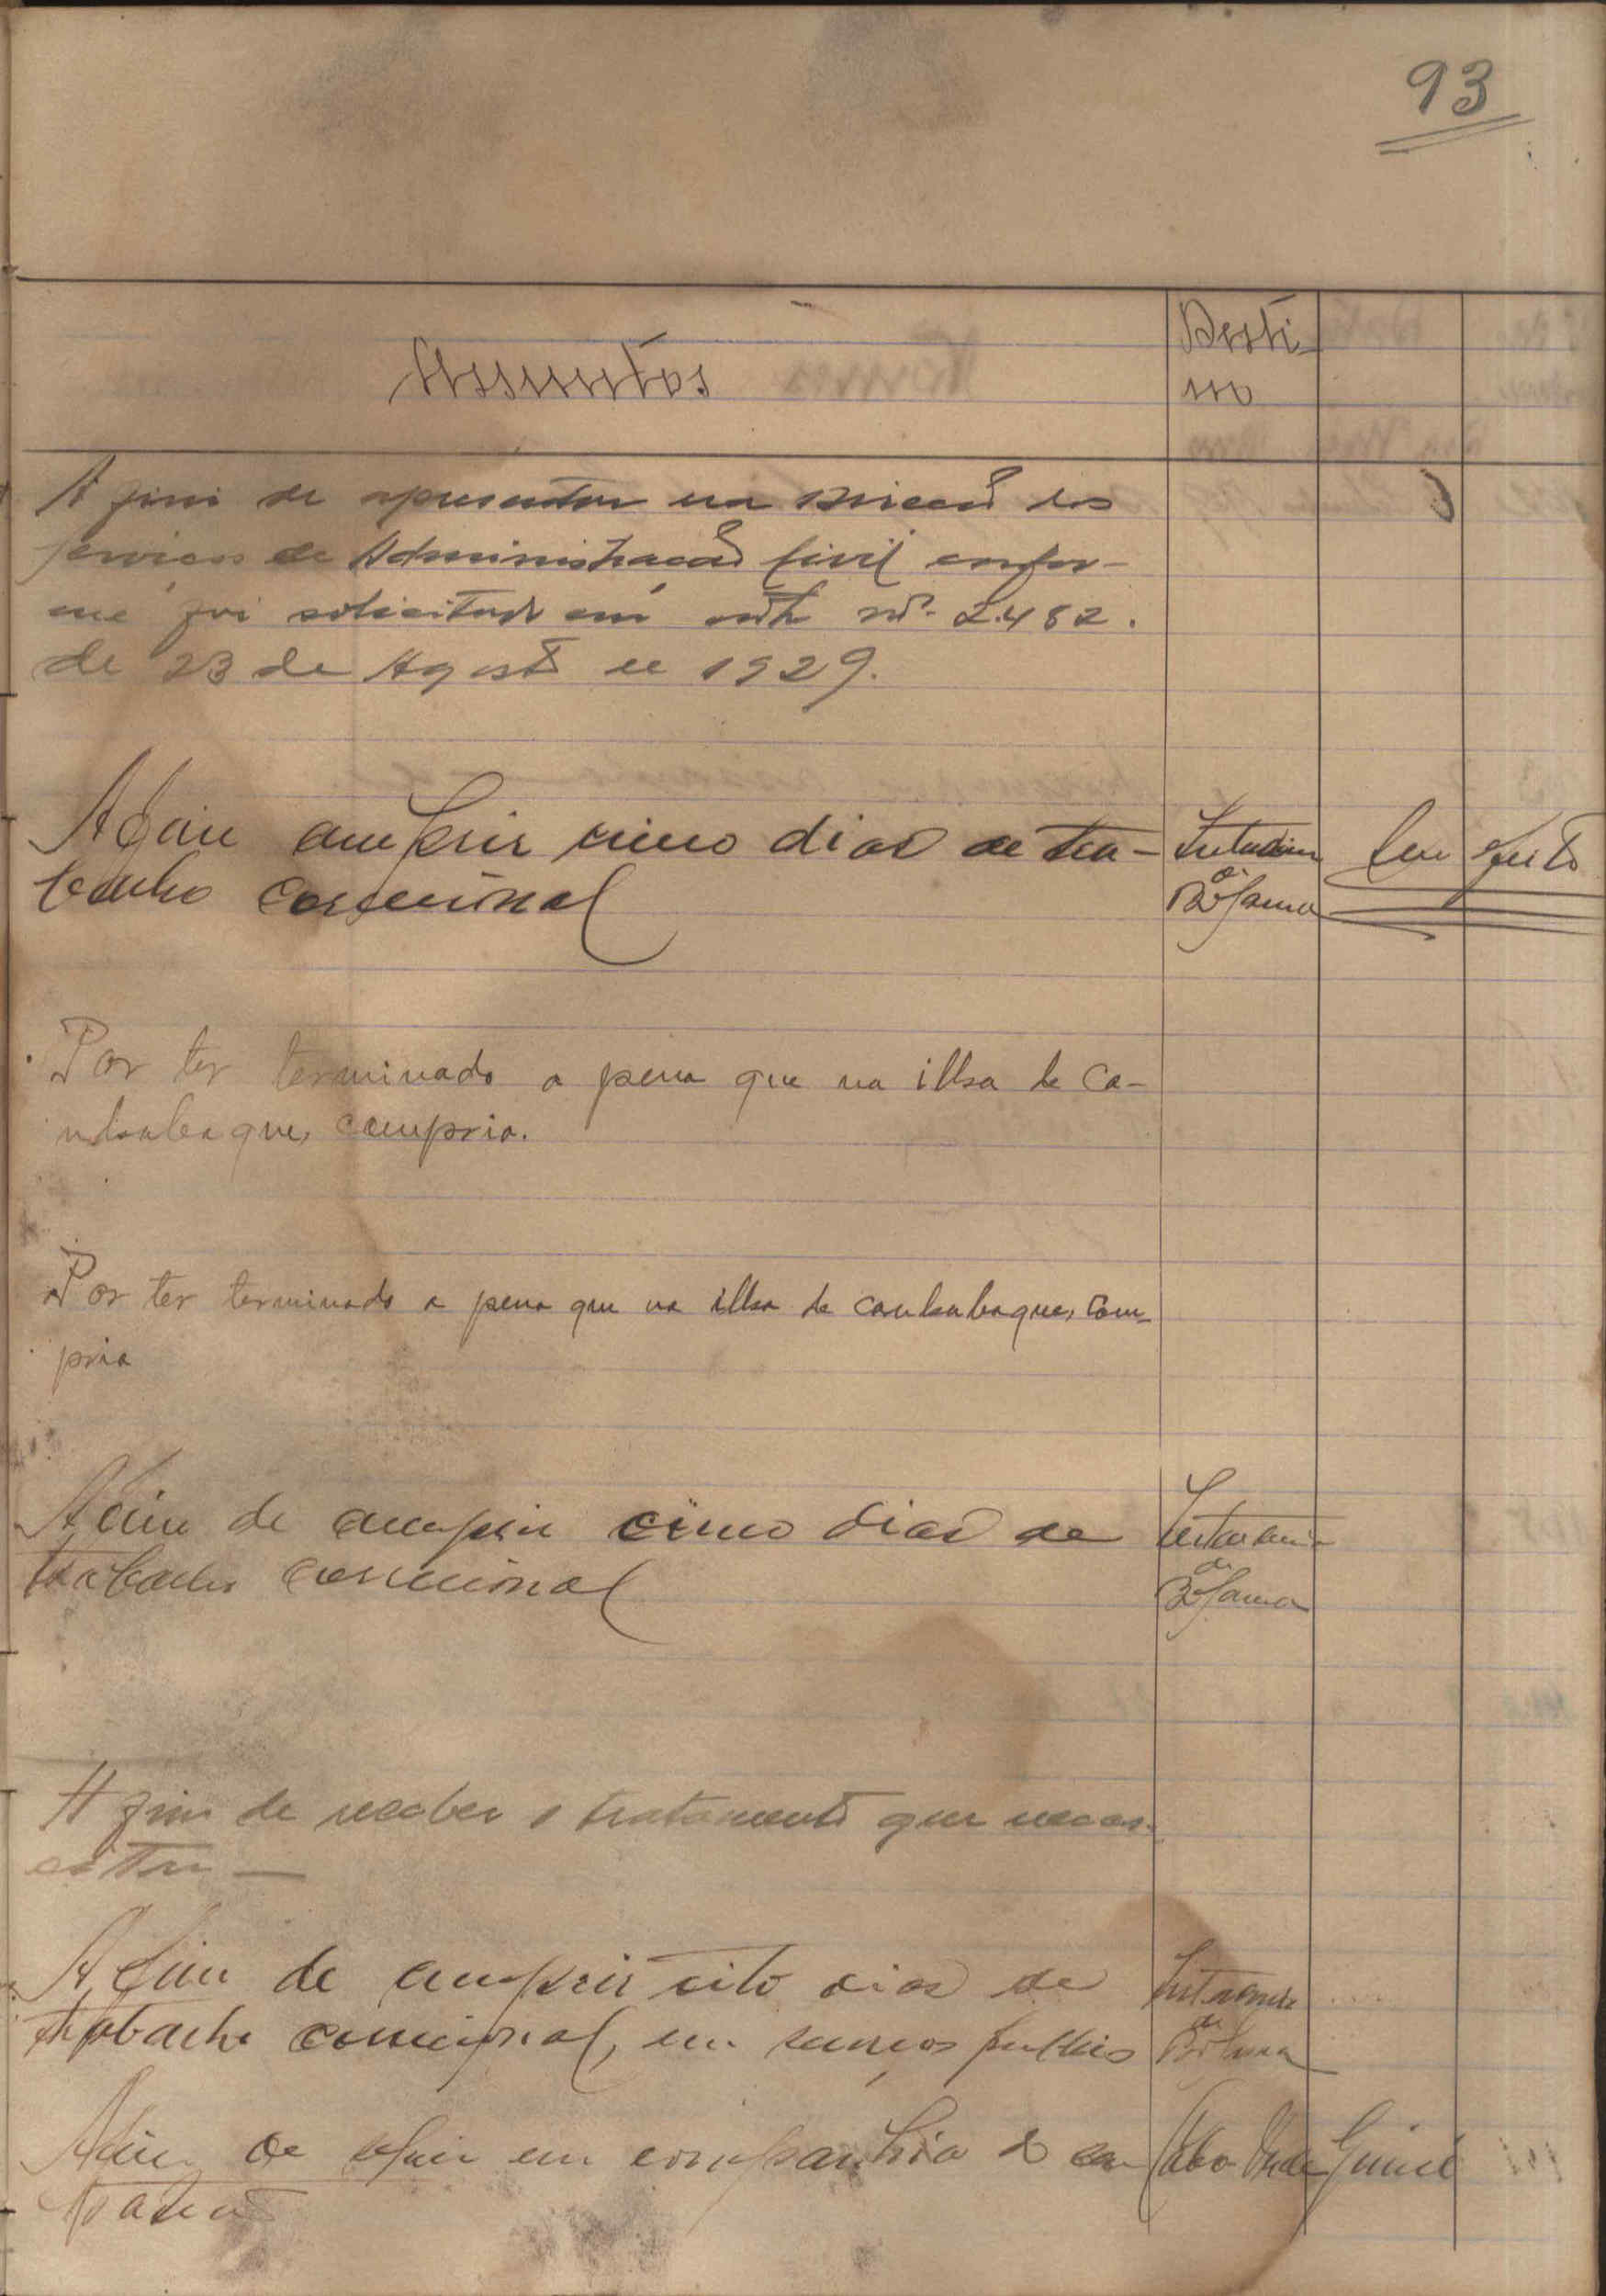 93
Assuntos
Desti-
no
A fim de apresentar na Direcção dos
serviços de Administração Civil confor-
me foi solicitado em nota nº 2.482.
de 23 de Agosto de 1929.
A fim cumprir cinco dias de tra-
balho correcional
de
Bolama
Sem efeito
Por ter terminado a pena que na ilha de Ca-
nhabaque, compria.
Por ter terminado a pena que na ilha de Canhabaque, com-
pria
A fim de cumprir cinco dias de
trabalho correcional
de
Bolama
A fim de receber o tratamento que neces-
sita —
A fim de cumprir oito dias de
trabalho correcional, em serviços publicos
de
Bolama
A fim de seguir em companhia do
Cabo Verde Guiné